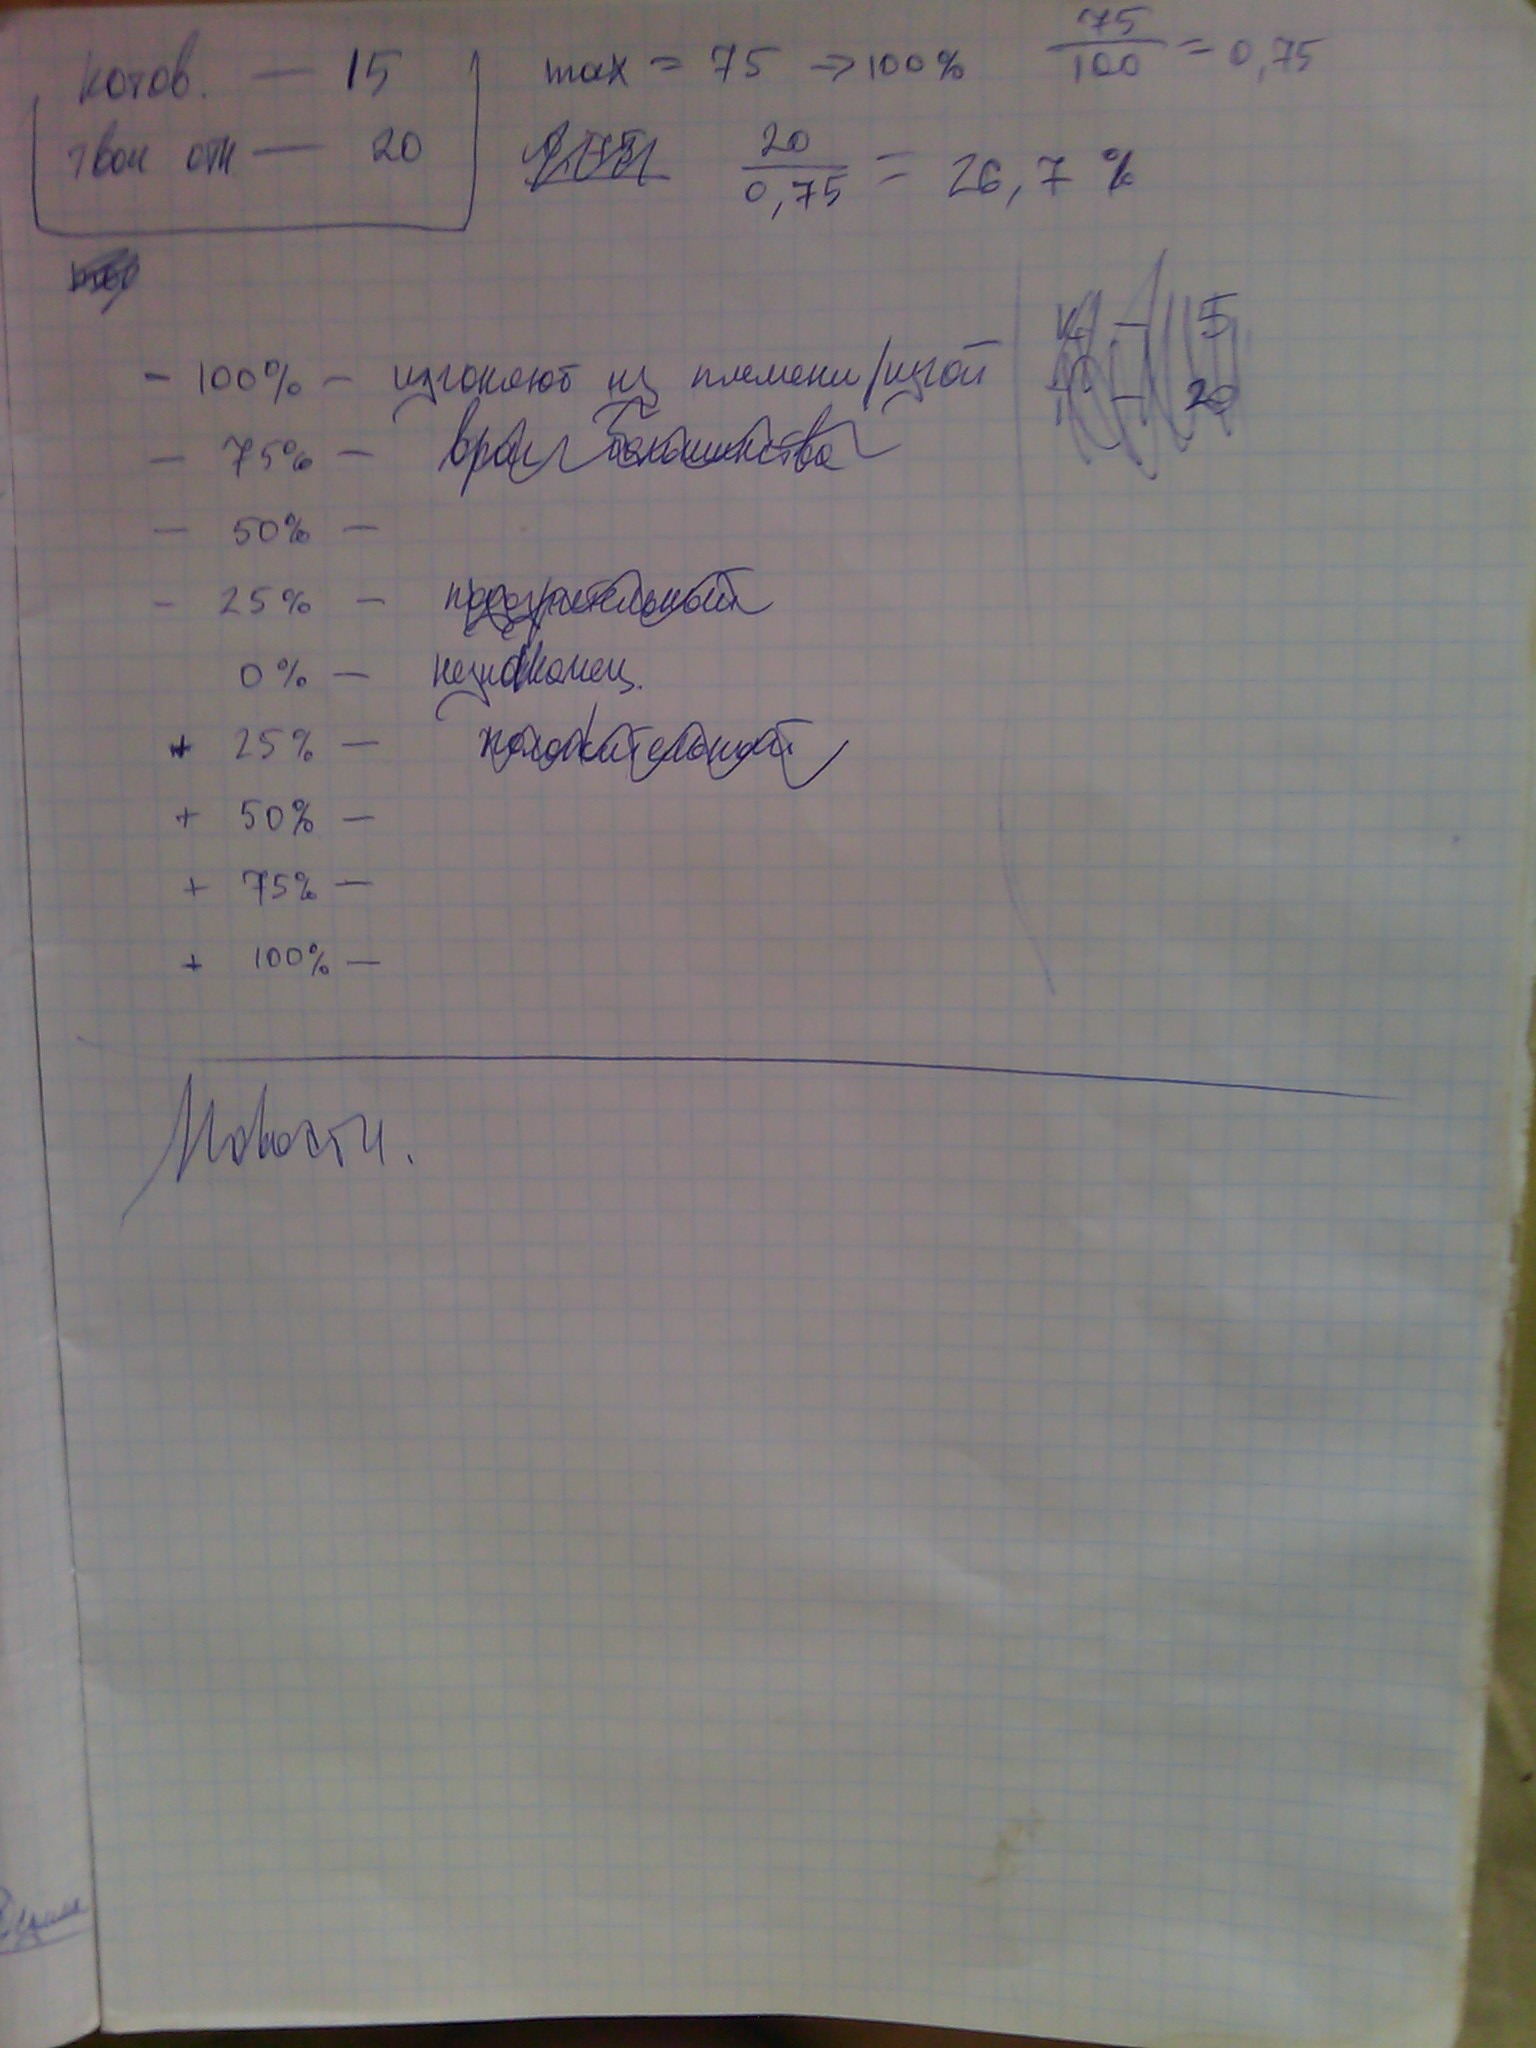 котов. — 15
твои отн — 20
max = 75 → 100%
75/100 = 0,75
20/0,75 = 26,7 %
К — 5
— 20
- 100% — изгоняют из племени/изгой
- 75% — враг большинства
- 50% —
- 25% — подозрительный
0% — незнакомец.
+ 25% — положительный
+ 50% —
+ 75% —
+ 100% —
Новости.